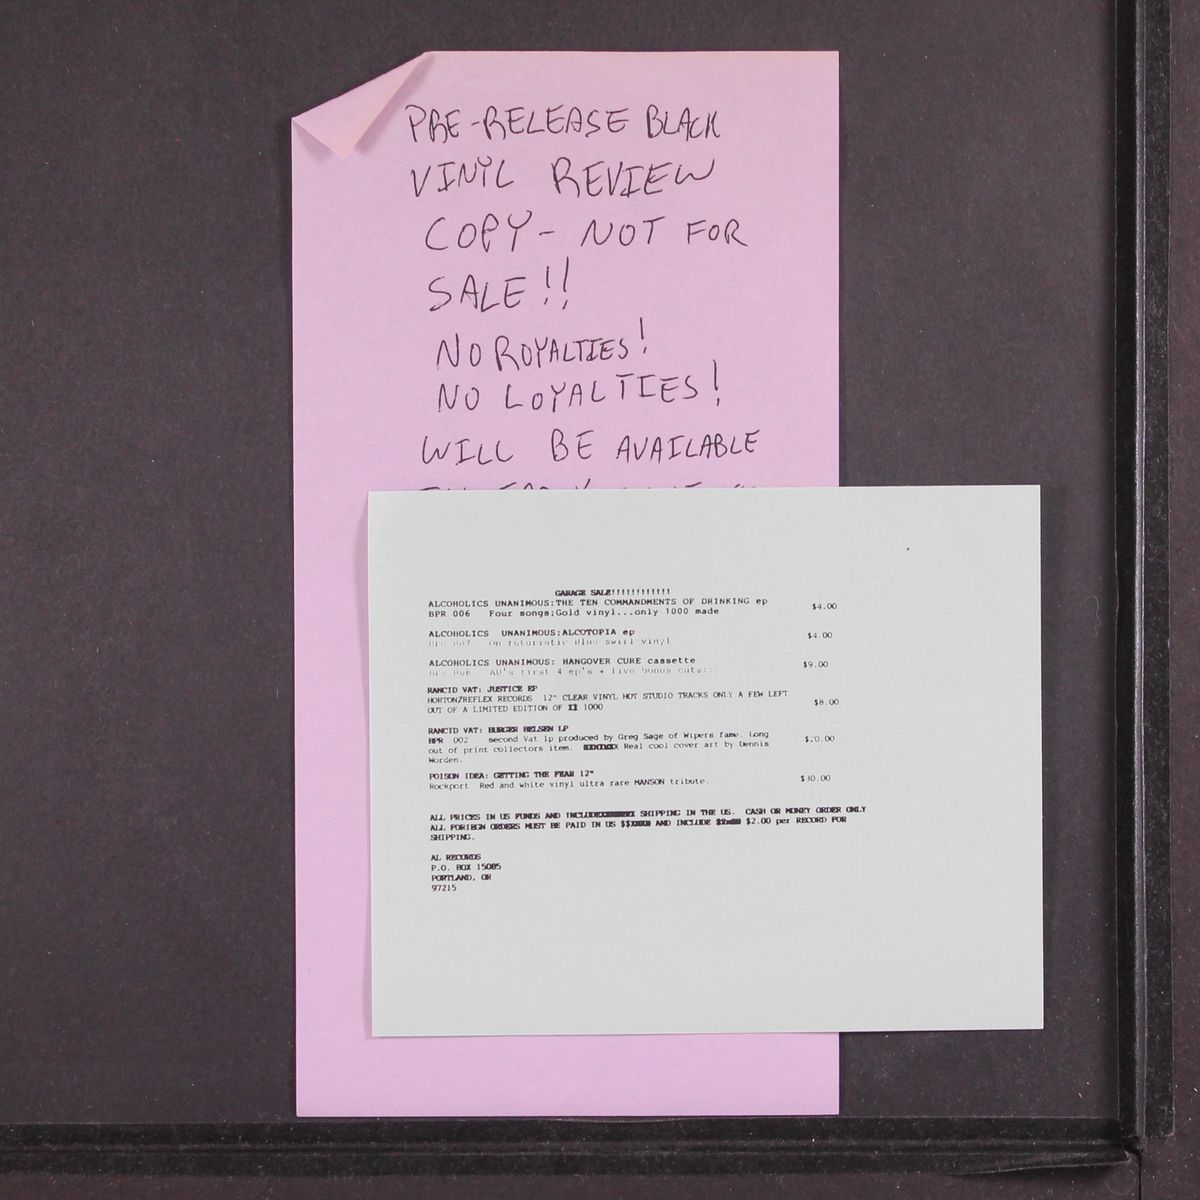 PRE-RELEASE BLACK
VINYL REVIEW
COPY- NOT FOR
SALE!!
NO ROYALTIES!
NO LOYALTIES!
WILL BE AVAILABLE
GARAGE SALE!!!!!!!!!!!!
ALCOHOLICS UNANIMOUS:THE TEN COMMANDMENTS OF DRINKING ep
BPR 006 Four songs;Gold vinyl...only 1000 made $4.00
ALCOHOLICS UNANIMOUS:ALCOTOPIA ep $4.00
BPR 007 on futuristic blue swirl vinyl
ALCOHOLICS UNANIMOUS: HANGOVER CURE cassette $9.00
BPR 008 AU's first 4 ep's + five bonus cuts!!
RANCID VAT: JUSTICE EP
HORTON/REFLEX RECORDS 12" CLEAR VINYL HOT STUDIO TRACKS ONLY A FEW LEFT
OUT OF A LIMITED EDITION OF 1000 $8.00
RANCID VAT: BURGER BELSEN LP
BPR 002 second Vat lp produced by Greg Sage of Wipers fame. Long $20.00
out of print collectors item. Real cool cover art by Dennis
Worden.
POISON IDEA: GETTING THE FEAR 12"
Rockport Red and white vinyl ultra rare MANSON tribute. $30.00
ALL PRICES IN US FUNDS AND INCLUDE SHIPPING IN THE US. CASH OR MONEY ORDER ONLY
ALL FORIEGN ORDERS MUST BE PAID IN US $$ AND INCLUDE $2.00 per RECORD FOR
SHIPPING.
AL RECORDS
P.O. BOX 15085
PORTLAND, OR
97215